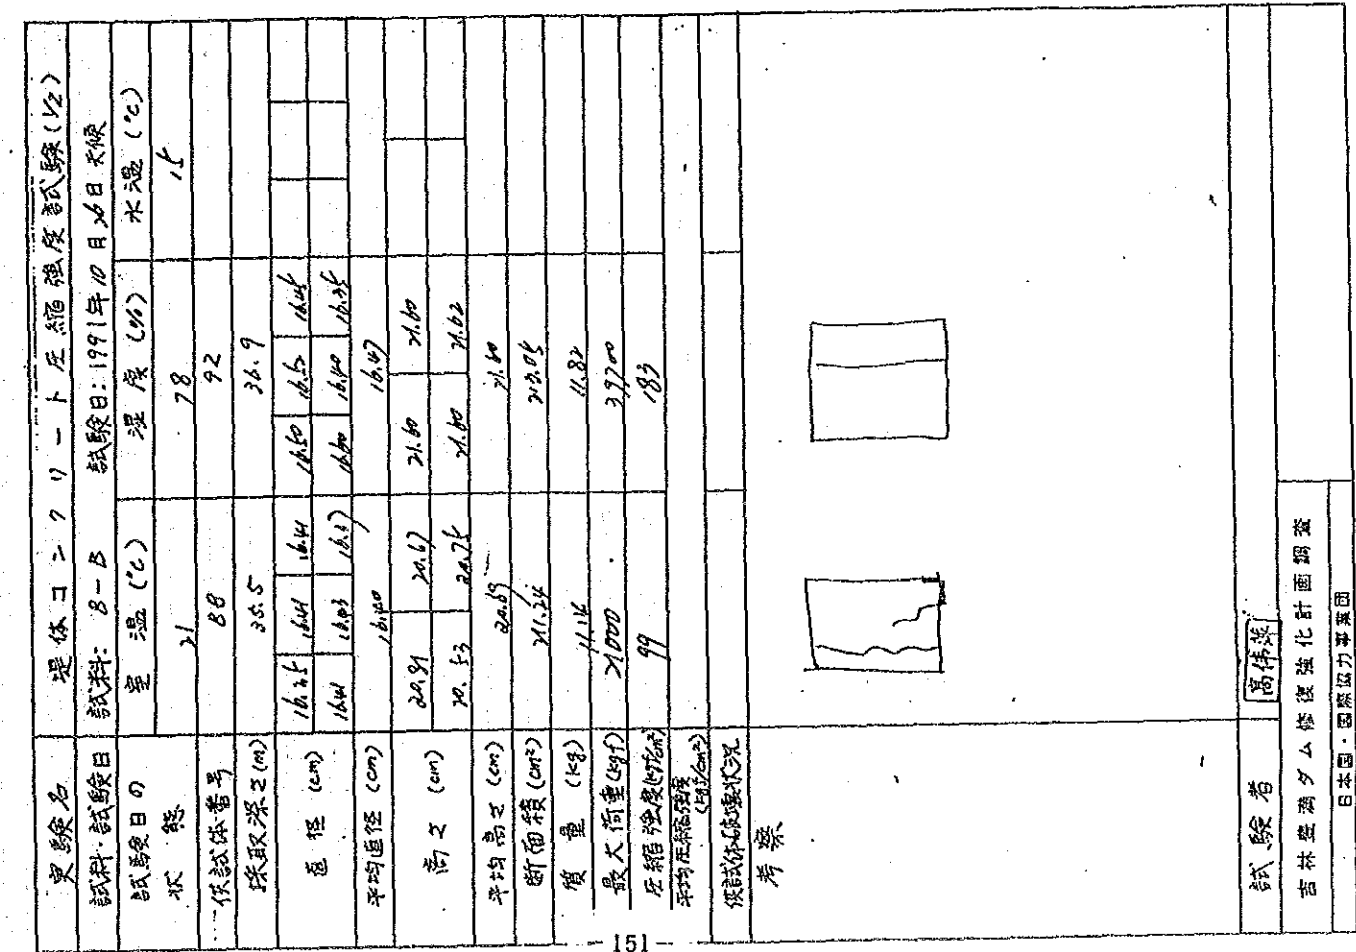 実験名 堤体コンクリート圧縮強度試験(1/2)
試料・試験日 試料: 8-B 試験日: 1991年10月26日 天候
試験日の状態 室温(°C) 湿度(%) 水温(°C)
21 78 15
供試体番号 88 92
採取深さ(m) 35.5 36.9
直径(cm) 16.35 16.41 16.41 16.50 16.52 16.45
16.41 16.43 16.37 16.60 16.40 16.35
平均直径(cm) 16.40 16.47
高さ(cm) 20.81 20.67 21.60 21.60
20.53 20.75 21.60 21.62
平均高さ(cm) 20.69 21.60
断面積(cm²) 211.24 213.05
質量(kg) 11.14 11.82
最大荷重(kgf) 21000 39700
圧縮強度(kgf/cm²) 99 183
平均圧縮強度(kgf/cm²)
供試体破壊状況
考察
試験者 高伟萍
吉林豊満ダム修復強化計画調査
日本国・国際協力事業団
— 151 —